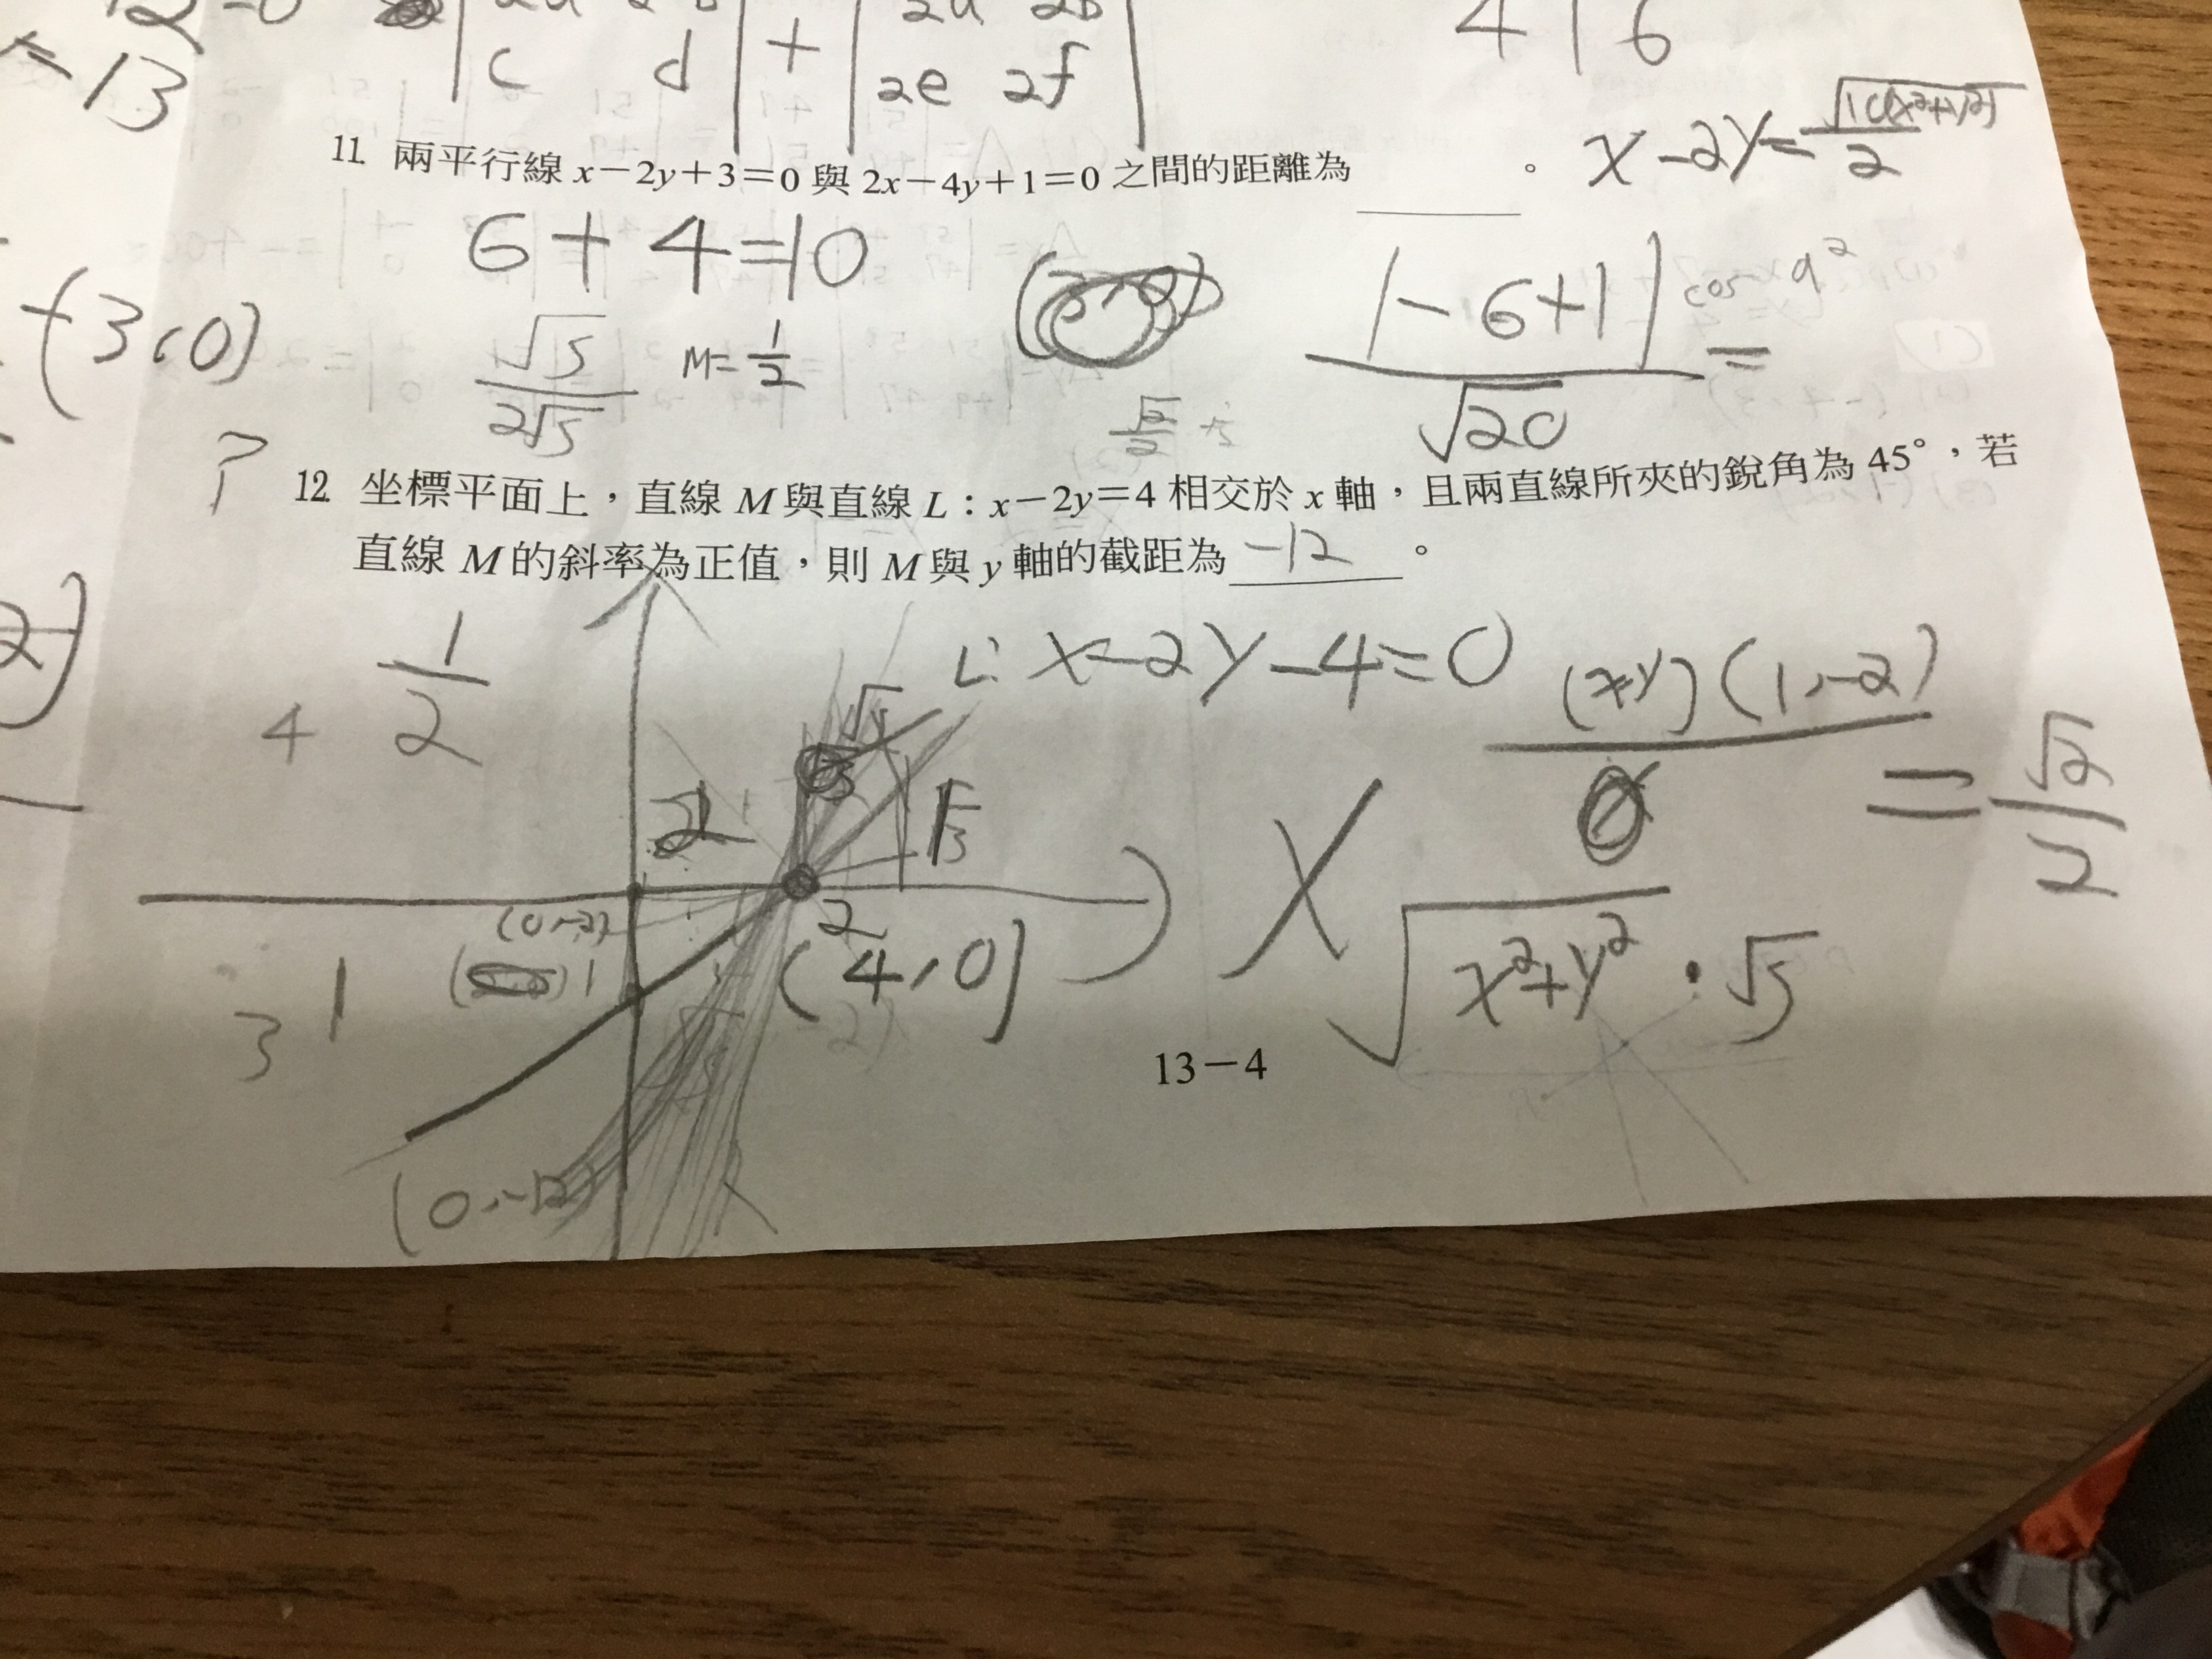 =13
c d + 2e 2f
4 1 6
11. 兩平行線 x－2y＋3＝0 與 2x－4y＋1＝0 之間的距離為 。
x-2y=
2
6+4=10
|-6+1| =
√20
cos
(3,0)
√5
2√5
M= 1/2
√2/2
?
12. 坐標平面上，直線 M 與直線 L：x－2y＝4 相交於 x 軸，且兩直線所夾的銳角為 45°，若
直線 M 的斜率為正值，則 M 與 y 軸的截距為 -12 。
4 1/2
L: x-2y-4=0
(x,y)(1,-2)
√(x²+y²)·√5
= √2/2
(0,-2)
2
(4,0)
1
3 1
(0,-12)
13－4